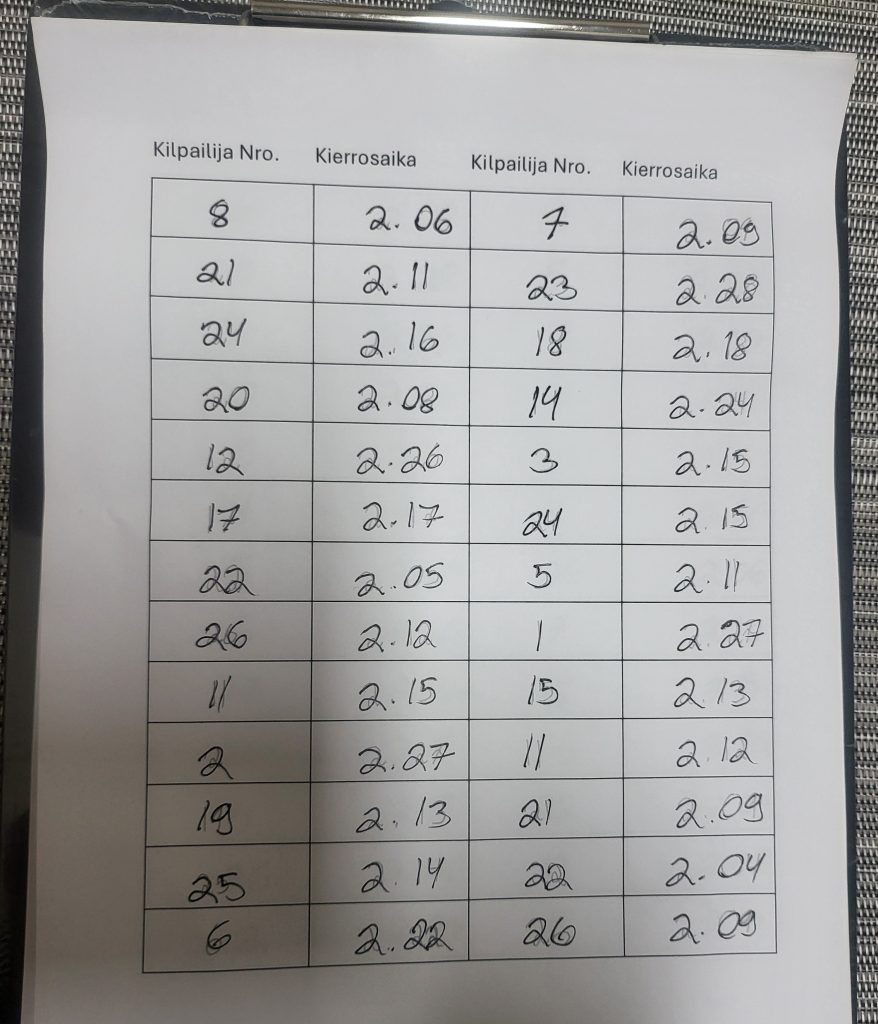 Kilpailija Nro. Kierrosaika Kilpailija Nro. Kierrosaika
8 2.06 7 2.09
21 2.11 23 2.28
24 2.16 18 2.18
20 2.08 14 2.24
12 2.26 3 2.15
17 2.17 24 2.15
22 2.05 5 2.11
26 2.12 1 2.27
11 2.15 15 2.13
2 2.27 11 2.12
19 2.13 21 2.09
25 2.14 22 2.04
6 2.22 26 2.09